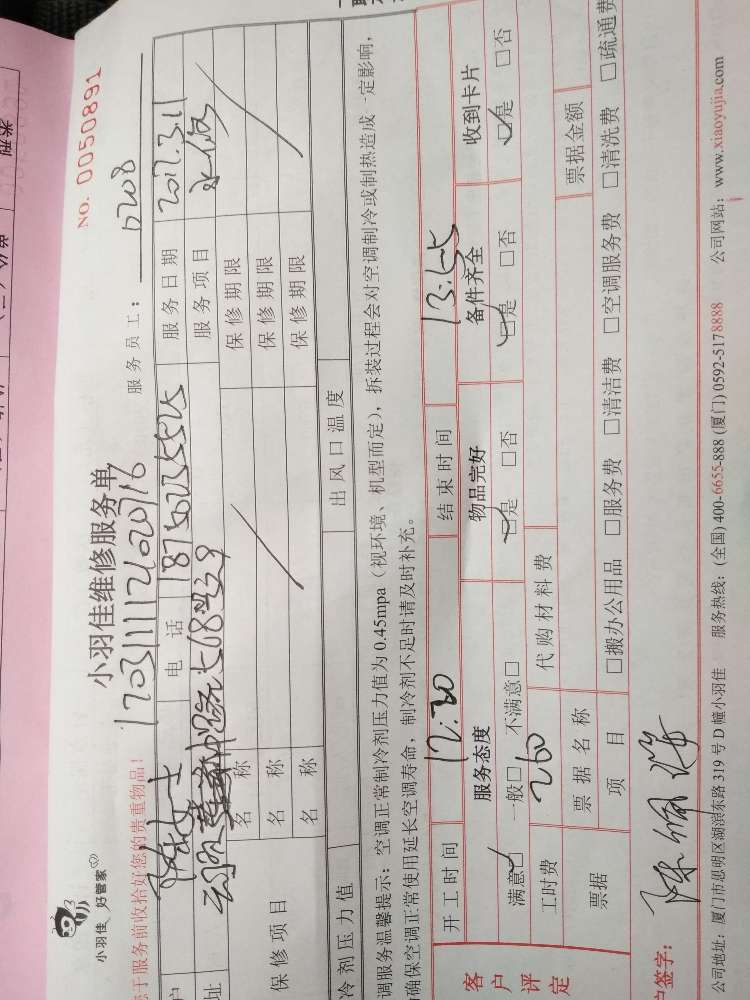 小羽佳 好管家
小羽佳维修服务单
NO. 0050891
于服务前收拾好您的贵重物品!
服务员工: 0208
户 女士 电话 18750235525 服务日期 2017.3.11
址 服务项目
保修项目
名称 保修期限
名称 保修期限
名称 保修期限
冷剂压力值 出风口温度
调服务温馨提示: 空调正常制冷剂压力值为 0.45mpa (视环境、机型而定), 拆装过程会对空调制冷或制热造成一定影响,
确保空调正常使用延长空调寿命, 制冷剂不足时请及时补充。
客户评定
开工时间 12:30 结束时间 13:55
服务态度 物品完好 备件齐全 收到卡片
满意□ 一般□ 不满意□ □是 □否 □是 □否 □是 □否
工时费 260 代购材料费
票据 票据名称 票据金额
项目 □搬办公用品 □服务费 □清洁费 □空调服务费 □清洗费 □疏通费
户签字:
公司地址: 厦门市思明区湖滨东路 319 号 D 幢小羽佳 服务热线: (全国) 400-6655-888 (厦门) 0592-5178888 公司网站: www.xiaoyujia.com
类型